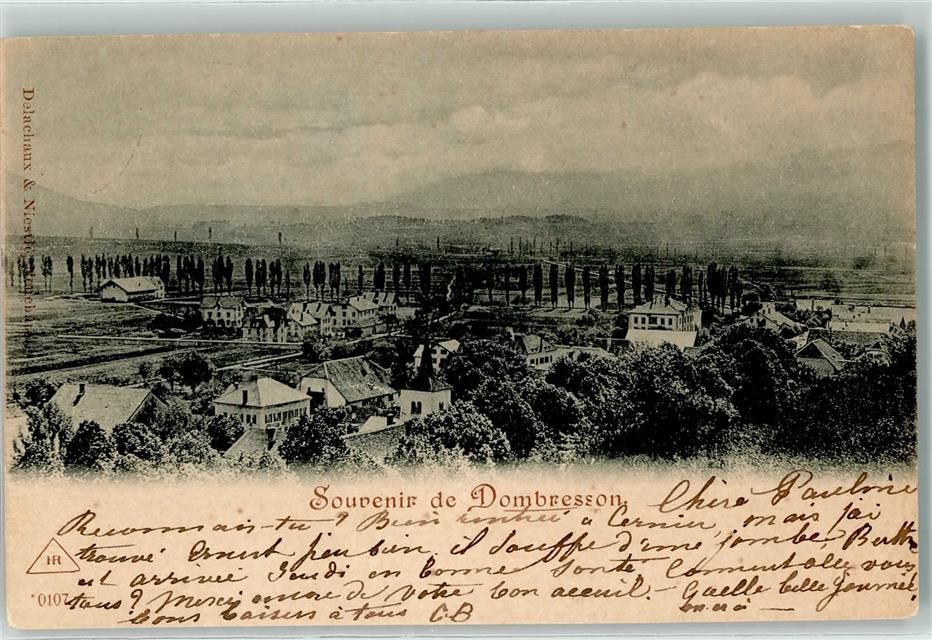 Delachaux & Niestlé
Souvenir de Dombresson
Chère Pauline
Reconnais-tu? Bien rentrée à Cernier, mais j'ai
trouvé Ernest peu bien, il souffre d'une jambe, Berthe
est arrivée Jeudi en bonne santé Comment allez vous
tous? Merci encore de votre bon accueil. - Quelle belle journée
Bons baisers à tous CB
HR
0107